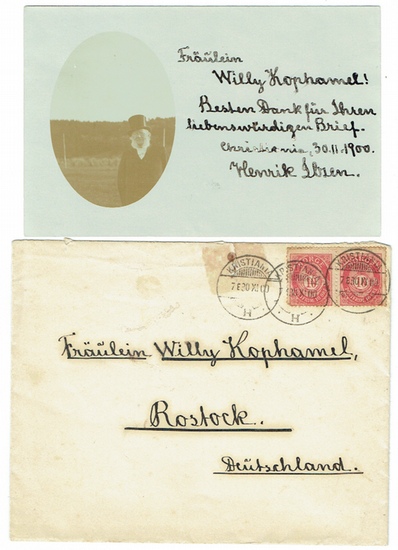 Fräulein
Willy Kophamel!
Besten Dank für Ihren
liebenswürdigen Brief.
Christiania, 30.11.1900.
Henrik Ibsen.
KRISTIANIA
H
KRISTIANIA
H
10
Fräulein Willy Kophamel,
Rostock.
Deutschland.